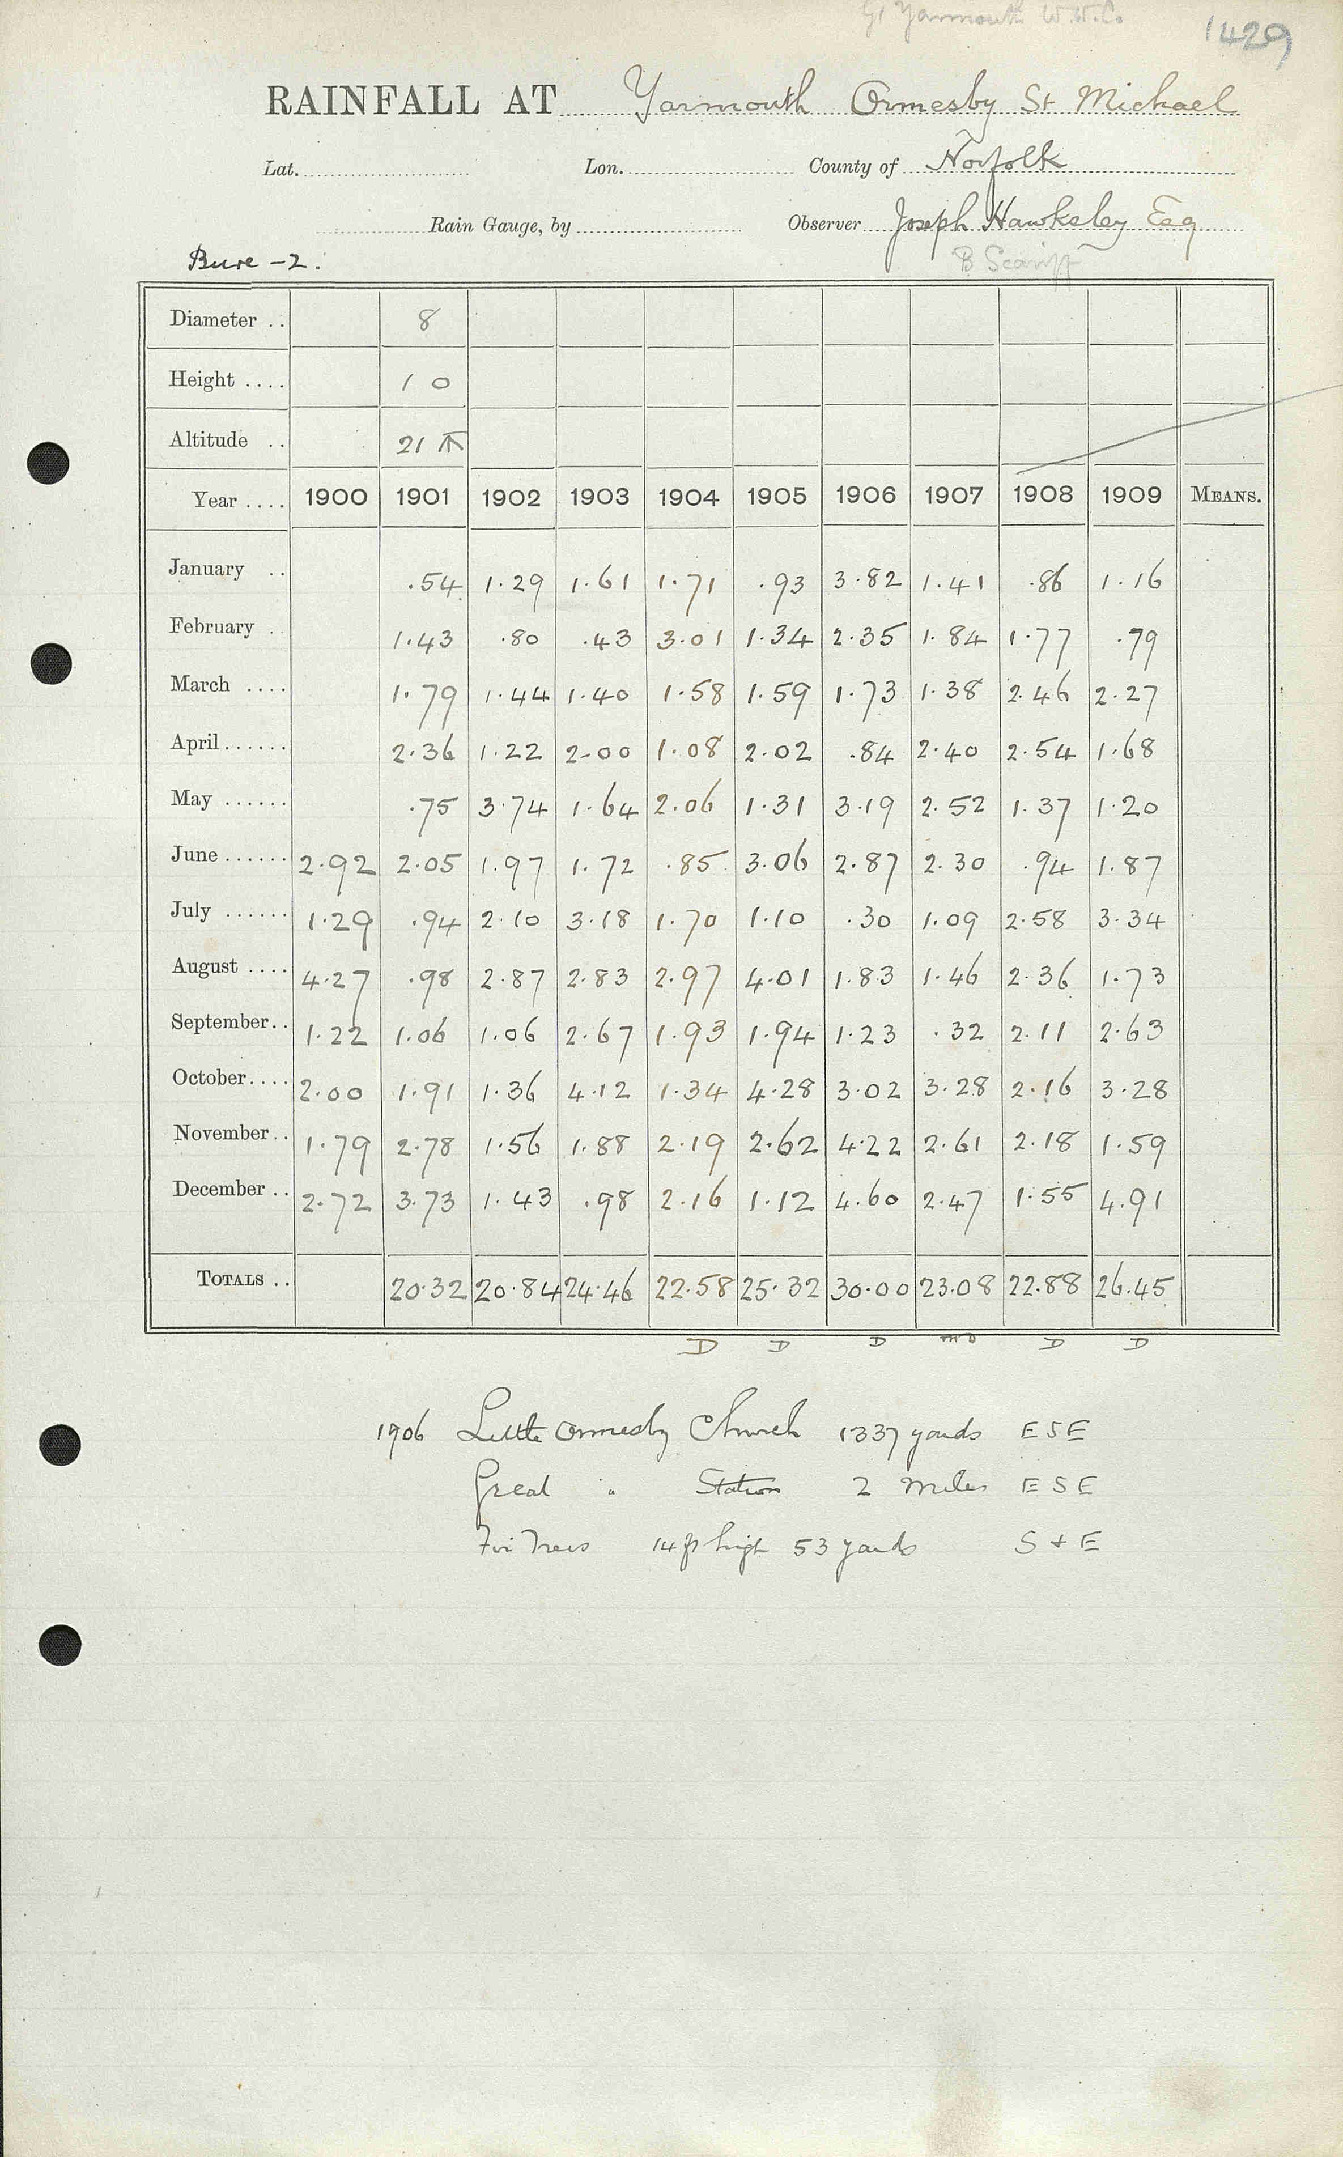 Gt Yarmouth W.W.C.
1429
RAINFALL AT Yarmouth Ormesby St Michael
Lat. Lon. County of Norfolk
Rain Gauge, by Observer Joseph Hawksley Esq
Bure - 2.
Diameter .. 8
Height .... 1 0
Altitude .. 21
Year .... 1900 1901 1902 1903 1904 1905 1906 1907 1908 1909 MEANS.
January .. .54 1.29 1.61 1.71 .93 3.82 1.41 .86 1.16
February . 1.43 .80 .43 3.01 1.34 2.35 1.84 1.77 .79
March .... 1.79 1.44 1.40 1.58 1.59 1.73 1.38 2.46 2.27
April ...... 2.36 1.22 2.00 1.08 2.02 .84 2.40 2.54 1.68
May ...... .75 3.74 1.64 2.06 1.31 3.19 2.52 1.37 1.20
June ...... 2.92 2.05 1.97 1.72 .85 3.06 2.87 2.30 .94 1.87
July ...... 1.29 .94 2.10 3.18 1.70 1.10 .30 1.09 2.58 3.34
August .... 4.27 .98 2.87 2.83 2.97 4.01 1.83 1.46 2.36 1.73
September.. 1.22 1.06 1.06 2.67 1.93 1.94 1.23 .32 2.11 2.63
October.... 2.00 1.91 1.36 4.12 1.34 4.28 3.02 3.28 2.16 3.28
November.. 1.79 2.78 1.56 1.88 2.19 2.62 4.22 2.61 2.18 1.59
December .. 2.72 3.73 1.43 .98 2.16 1.12 4.60 2.47 1.55 4.91
TOTALS .. 20.32 20.84 24.46 22.58 25.32 30.00 23.08 22.88 26.45
D D D mD D D
1906 Little Ormesby Church 1337 yards ESE
Great " Station 2 miles ESE
Fir Trees 14 ft high 53 yards S + E